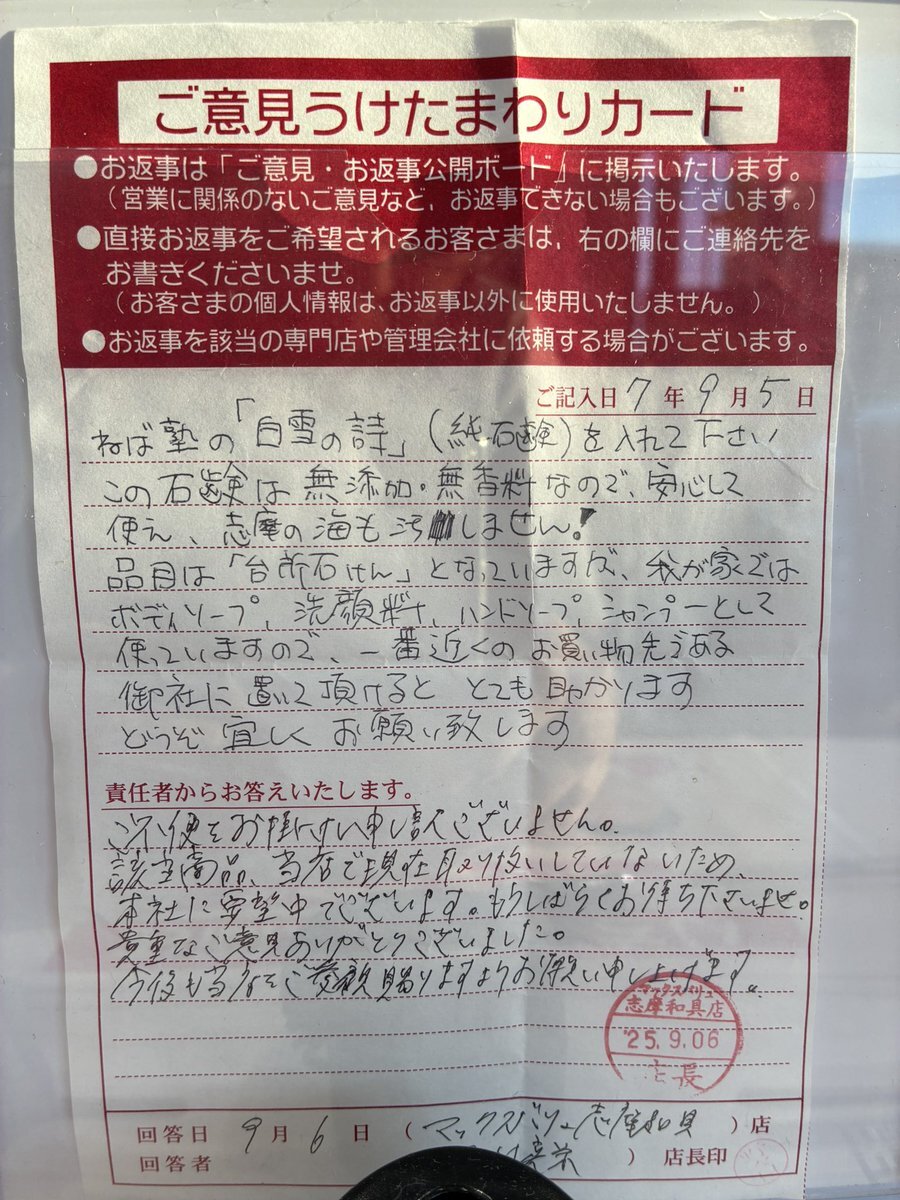 ご意見うけたまわりカード
●お返事は「ご意見・お返事公開ボード」に掲示いたします。
（営業に関係のないご意見など、お返事できない場合もございます。）
●直接お返事をご希望されるお客さまは、右の欄にご連絡先を
お書きくださいませ。
（お客さまの個人情報は、お返事以外に使用いたしません。）
●お返事を該当の専門店や管理会社に依頼する場合がございます。
ご記入日 7 年 9 月 5 日
ねば塾の「白雪の詩」(純石鹸)を入れて下さい
この石鹸は無添加・無香料なので、安心して
使え、志摩の海も汚しません!
品目は「台所石けん」となっていますが、我が家では
ボディソープ、洗顔料、ハンドソープ、シャンプーとして
使っていますので、一番近くのお買い物先である
御社に置いて頂けると とても助かります
どうぞ宜しくお願い致します
責任者からお答えいたします。
ご不便をお掛けし申し訳ございません。
該当商品、当店で現在取り扱いしていないため、
本社に要望中でございます。もうしばらくお待ち下さいませ。
貴重なご意見ありがとうございました。
今後も当店をご愛顧賜りますようお願い申し上げます。
マックスバリュ
志摩和具店
'25.9.06
店長
回答日 9 月 6 日 （マックスバリュ志摩和具）店
回答者 ） 店長印